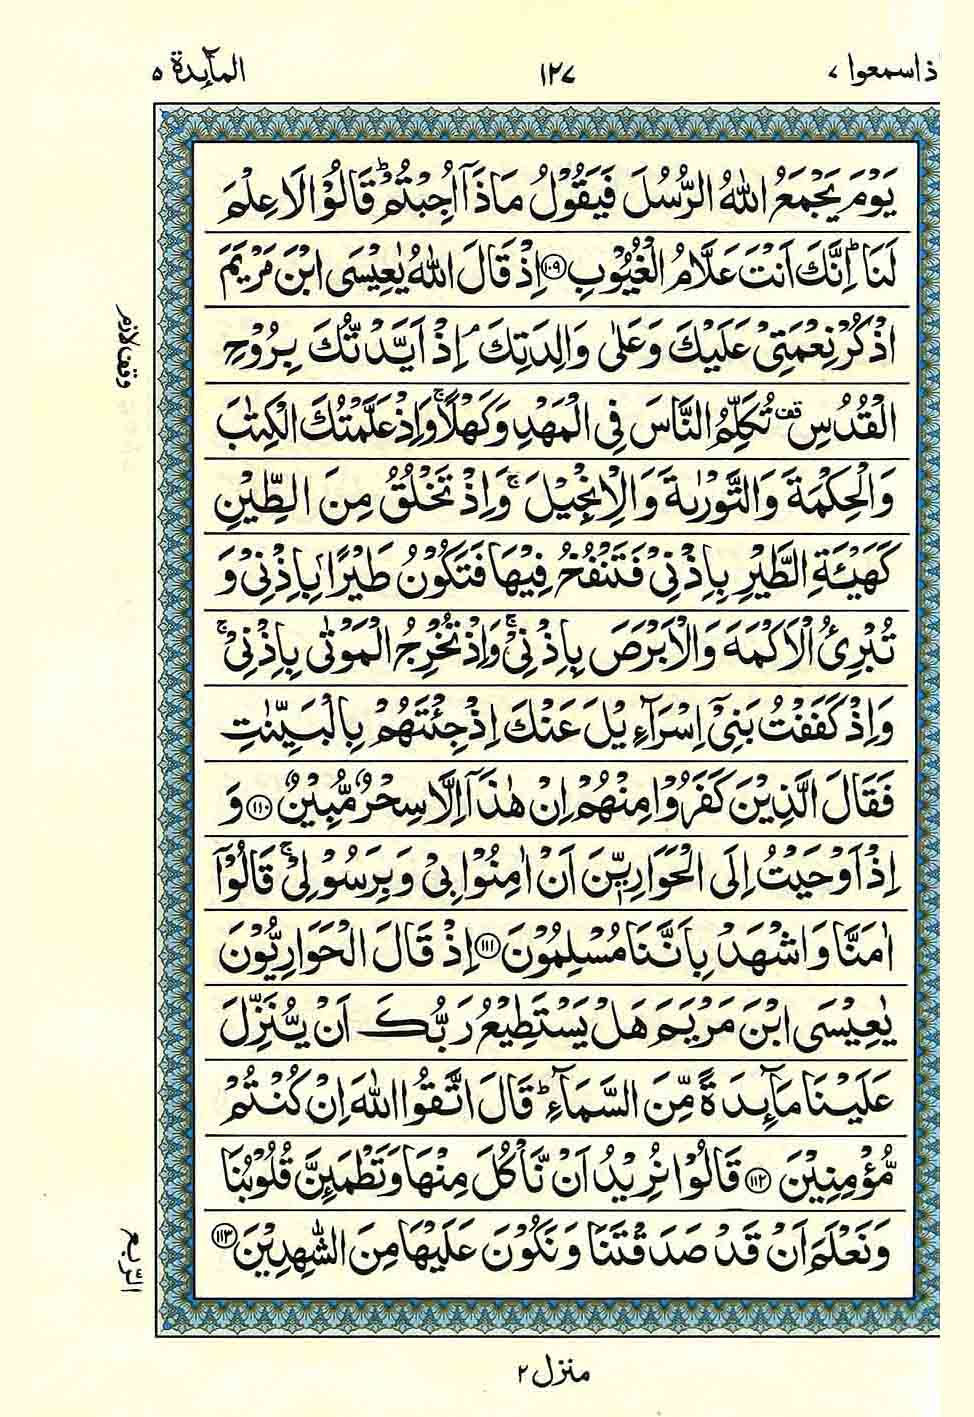 ذاسمعوا ٧
١٢٧
المآىِٕدة ٥
يَوْمَ يَجْمَعُ اللّٰهُ الرُّسُلَ فَيَقُوْلُ مَاذَآ اُجِبْتُمْ ؕ قَالُوْا لَا عِلْمَ
لَنَا ؕ اِنَّكَ اَنْتَ عَلَّامُ الْغُيُوْبِ ﴿۱۰۹﴾ اِذْ قَالَ اللّٰهُ يٰعِيْسَى ابْنَ مَرْيَمَ
اذْكُرْ نِعْمَتِيْ عَلَيْكَ وَعَلٰى وَالِدَتِكَ ۘ اِذْ اَيَّدْتُّكَ بِرُوْحِ
الْقُدُسِ ۫ تُكَلِّمُ النَّاسَ فِي الْمَهْدِ وَكَهْلًا ۚ وَاِذْ عَلَّمْتُكَ الْكِتٰبَ
وَالْحِكْمَةَ وَالتَّوْرٰىةَ وَالْاِنْجِيْلَ ۚ وَاِذْ تَخْلُقُ مِنَ الطِّيْنِ
كَهَيْـَٔةِ الطَّيْرِ بِاِذْنِيْ فَتَنْفُخُ فِيْهَا فَتَكُوْنُ طَيْرًۢا بِاِذْنِيْ وَ
تُبْرِئُ الْاَكْمَهَ وَالْاَبْرَصَ بِاِذْنِيْ ۚ وَاِذْ تُخْرِجُ الْمَوْتٰى بِاِذْنِيْ ۚ
وَاِذْ كَفَفْتُ بَنِيْٓ اِسْرَآءِيْلَ عَنْكَ اِذْ جِئْتَهُمْ بِالْبَيِّنٰتِ
فَقَالَ الَّذِيْنَ كَفَرُوْا مِنْهُمْ اِنْ هٰذَآ اِلَّا سِحْرٌ مُّبِيْنٌ ﴿۱۱۰﴾ وَ
اِذْ اَوْحَيْتُ اِلَى الْحَوَارِيّٖنَ اَنْ اٰمِنُوْا بِيْ وَبِرَسُوْلِيْ ۚ قَالُوْٓا
اٰمَنَّا وَاشْهَدْ بِاَنَّنَا مُسْلِمُوْنَ ﴿۱۱۱﴾ اِذْ قَالَ الْحَوَارِيُّوْنَ
يٰعِيْسَى ابْنَ مَرْيَمَ هَلْ يَسْتَطِيْعُ رَبُّكَ اَنْ يُّنَزِّلَ
عَلَيْنَا مَآىِٕدَةً مِّنَ السَّمَآءِ ؕ قَالَ اتَّقُوا اللّٰهَ اِنْ كُنْتُمْ
مُّؤْمِنِيْنَ ﴿۱۱۲﴾ قَالُوْا نُرِيْدُ اَنْ نَّاْكُلَ مِنْهَا وَتَطْمَىِٕنَّ قُلُوْبُنَا
وَنَعْلَمَ اَنْ قَدْ صَدَقْتَنَا وَنَكُوْنَ عَلَيْهَا مِنَ الشّٰهِدِيْنَ ﴿۱۱۳﴾
وقف لازم
الربع
منزل ٢